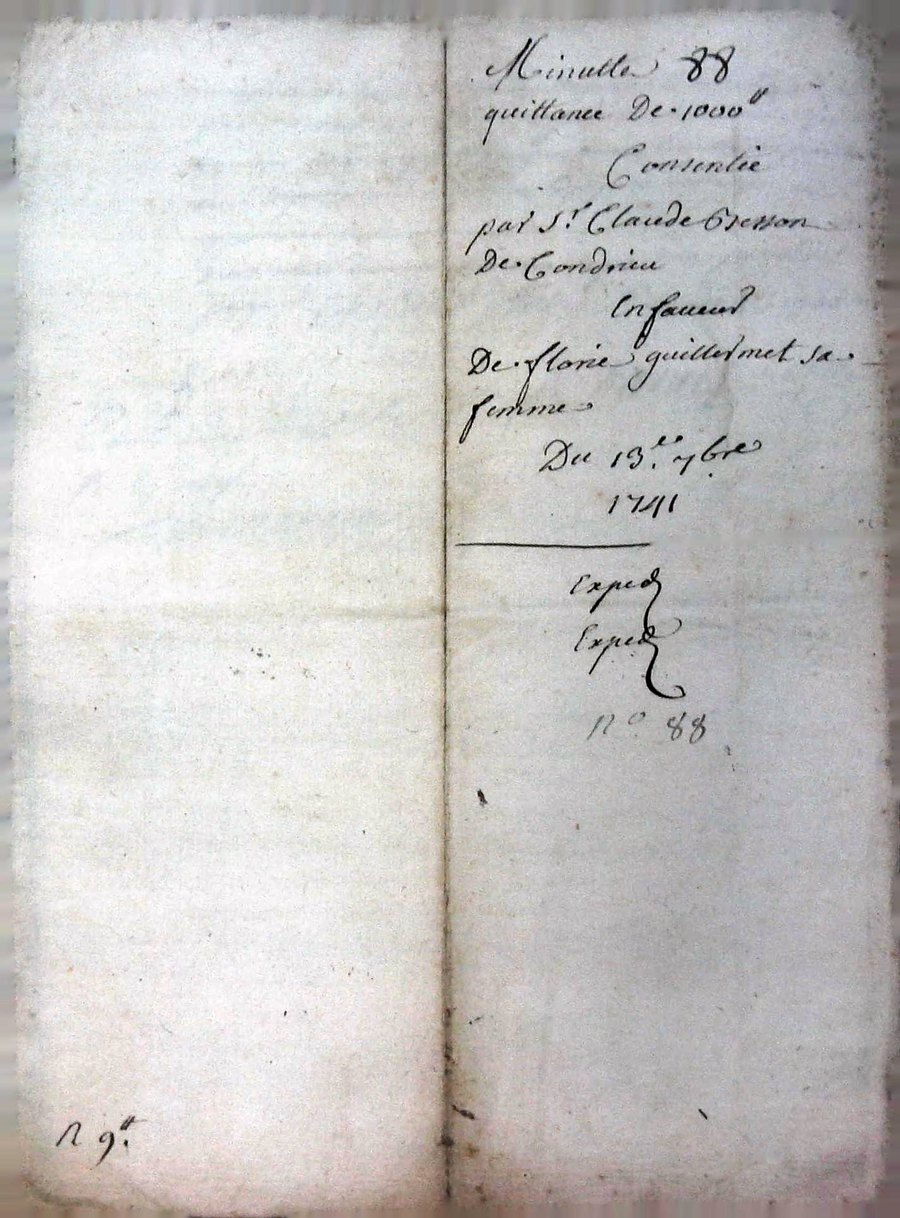 Minutte 88
quittance De 1000#
Consentie
par Sr. Claude
De Condrieu
En faveur
De florie guillermet sa
femme
Du 13.e 7bre
1741
Exped
Exped
No 88
R 9#